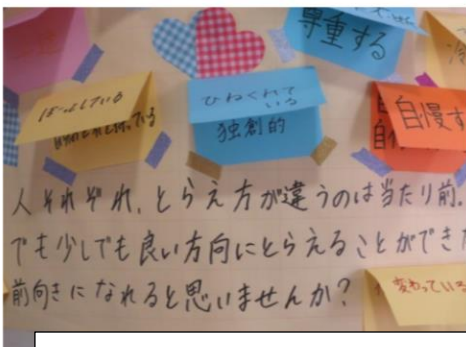 尊重する
ぼーっとしている
ひねくれて
いる
独創的
自慢す
人それぞれ、とらえ方が違うのは当たり前。
でも少しでも良い方向にとらえることができた
前向きになれると思いませんか?
変わっている